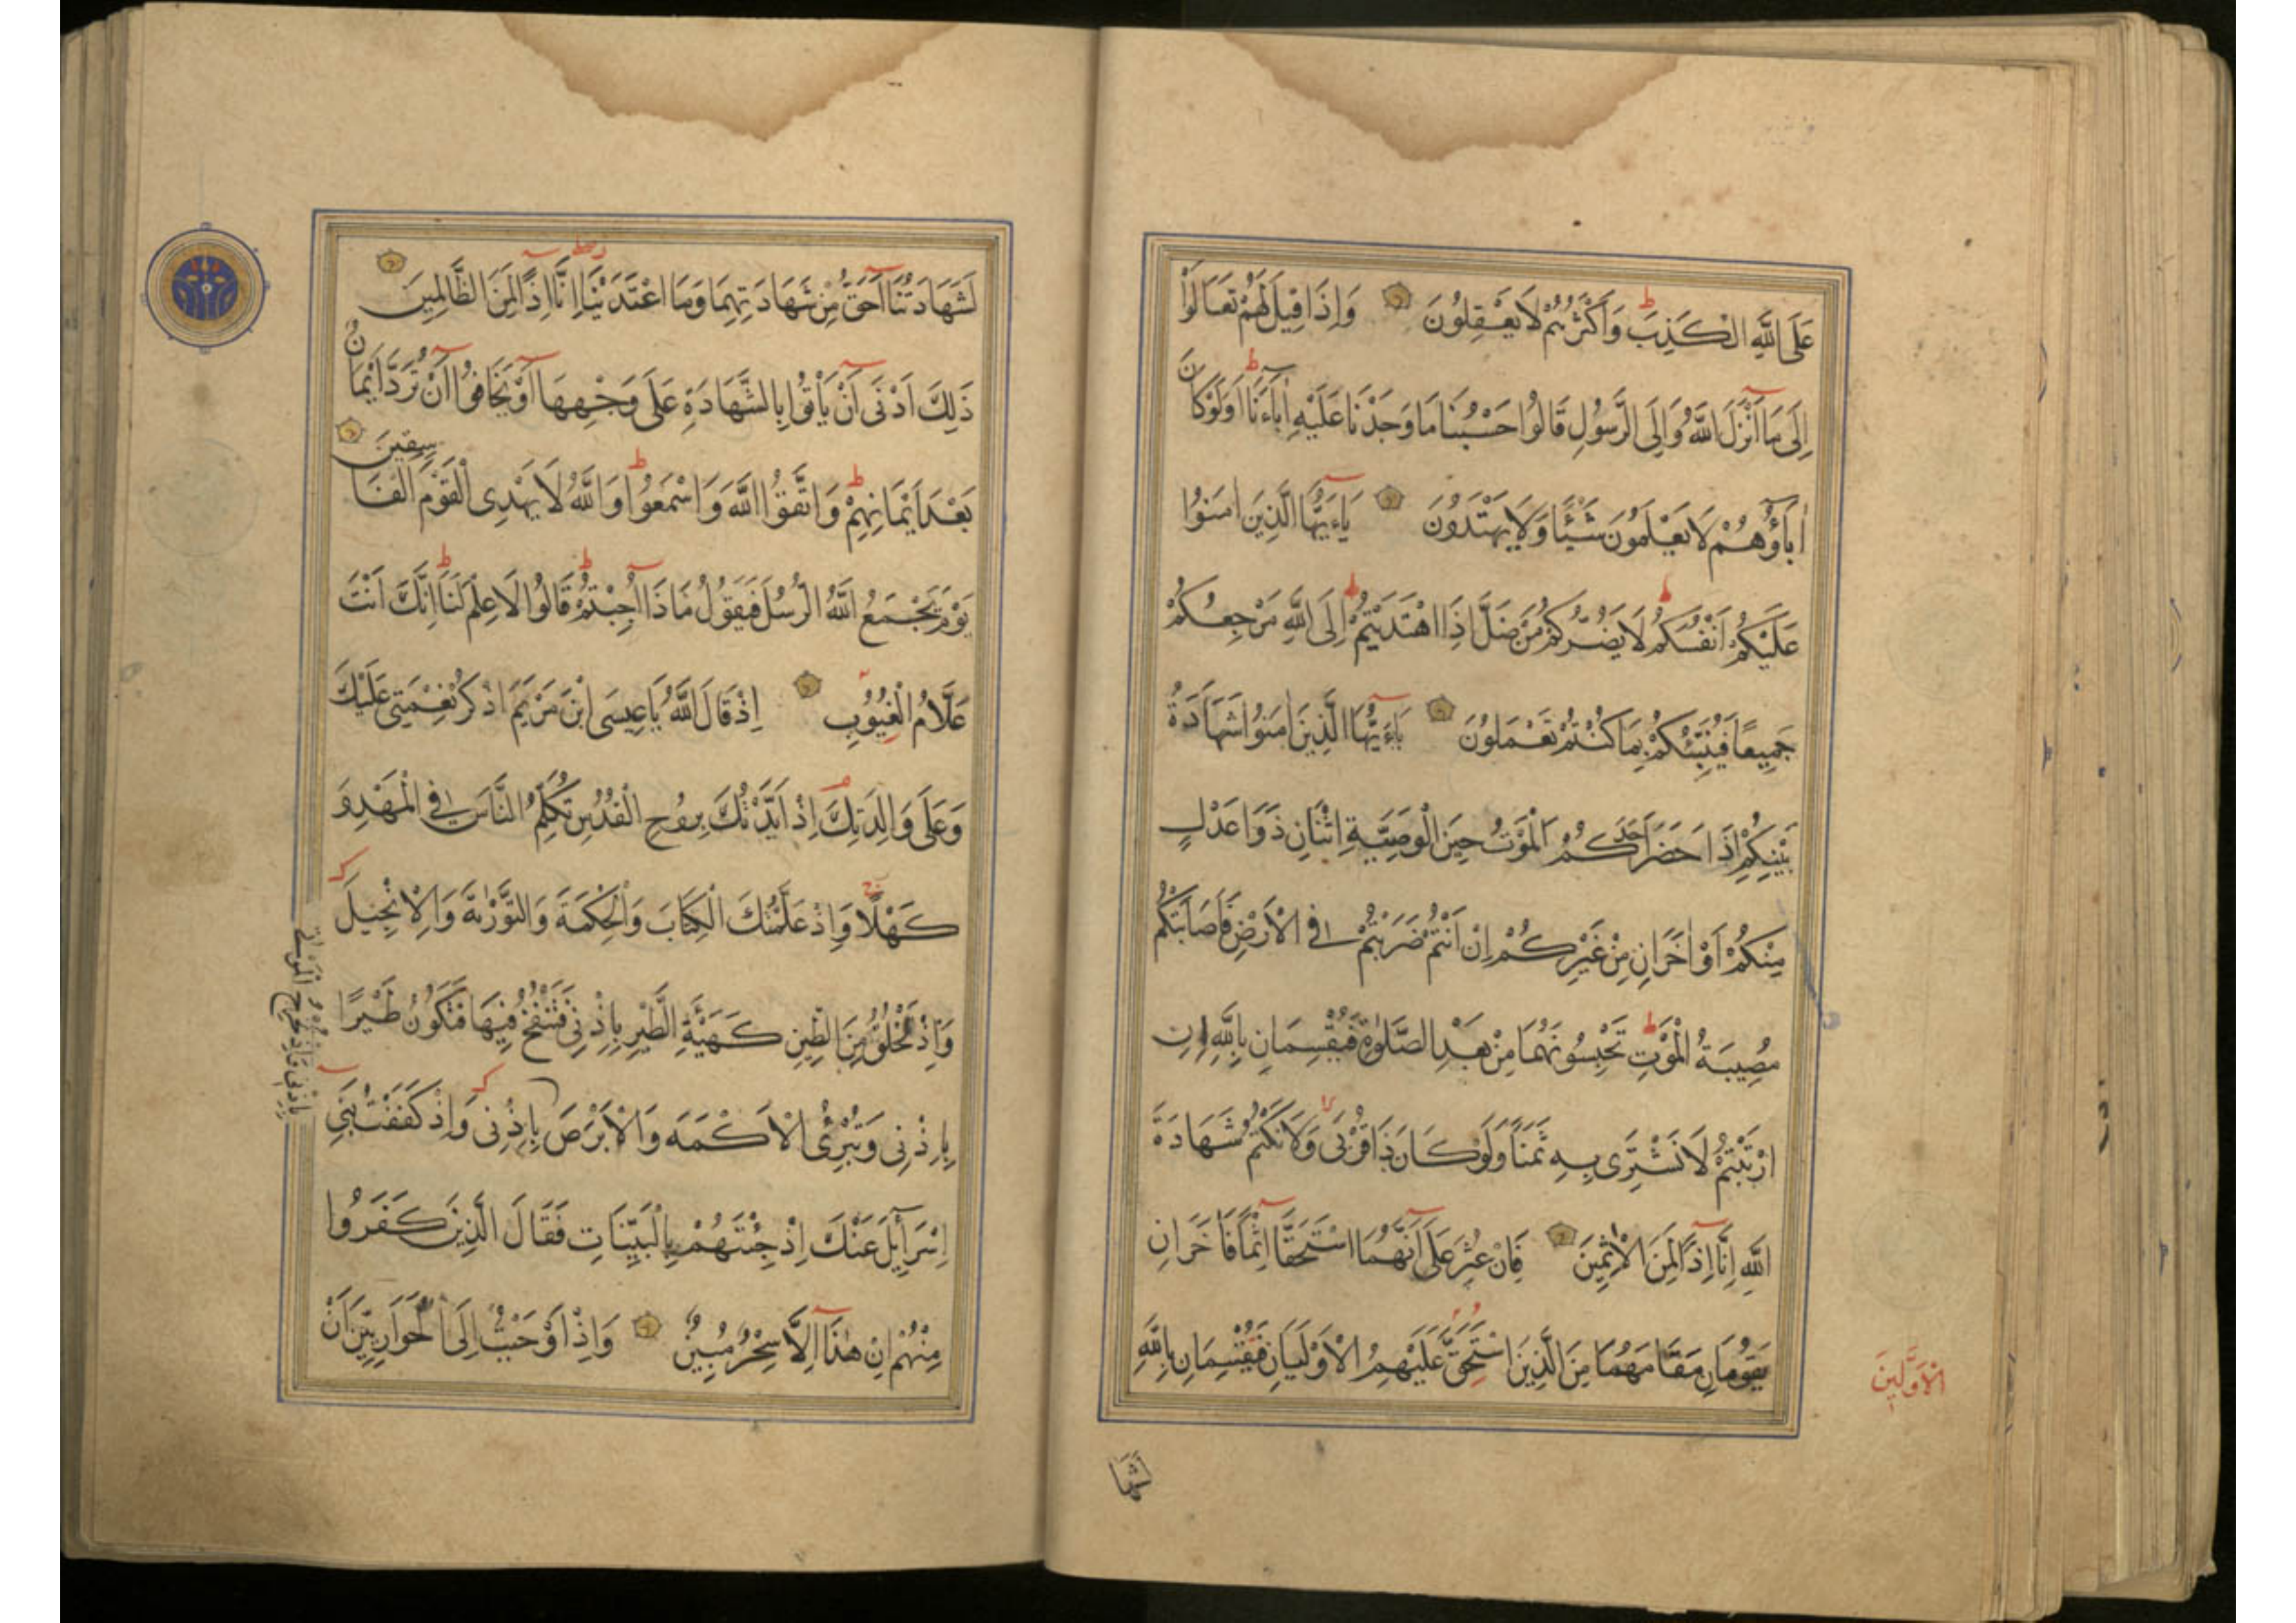 عَلَى اللَّهِ الْكَذِبَ وَأَكْثَرُهُمْ لَا يَعْقِلُونَ وَإِذَا قِيلَ لَهُمْ تَعَالَوْا
إِلَى مَا أَنْزَلَ اللَّهُ وَإِلَى الرَّسُولِ قَالُوا حَسْبُنَا مَا وَجَدْنَا عَلَيْهِ اٰبَاءَنَا أَوَلَوْ كَانَ
اٰبَاؤُهُمْ لَا يَعْلَمُونَ شَيْئًا وَلَا يَهْتَدُونَ يَاءَيُّهَا الَّذِينَ اٰمَنُوا
عَلَيْكُمْ أَنْفُسَكُمْ لَا يَضُرُّكُمْ مَنْ ضَلَّ إِذَا اهْتَدَيْتُمْ إِلَى اللَّهِ مَرْجِعُكُمْ
جَمِيعًا فَيُنَبِّئُكُمْ بِمَا كُنْتُمْ تَعْمَلُونَ يَاءَيُّهَا الَّذِينَ اٰمَنُوا شَهَادَةُ
بَيْنِكُمْ إِذَا حَضَرَ أَحَدَكُمُ الْمَوْتُ حِينَ الْوَصِيَّةِ اثْنَانِ ذَوَا عَدْلٍ
مِنْكُمْ أَوْ اٰخَرَانِ مِنْ غَيْرِكُمْ إِنْ أَنْتُمْ ضَرَبْتُمْ فِي الْأَرْضِ فَأَصَابَتْكُمْ
مُصِيبَةُ الْمَوْتِ تَحْبِسُونَهُمَا مِنْ بَعْدِ الصَّلٰوةِ فَيُقْسِمَانِ بِاللَّهِ إِنِ
ارْتَبْتُمْ لَا نَشْتَرِي بِهِ ثَمَنًا وَلَوْ كَانَ ذَا قُرْبَى وَلَا نَكْتُمُ شَهَادَةَ
اللَّهِ إِنَّا إِذًا لَمِنَ الْاٰثِمِينَ فَإِنْ عُثِرَ عَلَى أَنَّهُمَا اسْتَحَقَّا إِثْمًا فَاٰخَرَانِ
يَقُومَانِ مَقَامَهُمَا مِنَ الَّذِينَ اسْتَحَقَّ عَلَيْهِمُ الْأَوْلَيَانِ فَيُقْسِمَانِ بِاللَّهِ
الْأَوَّلِينَ
لَشَهَا
لَشَهَادَتُنَا أَحَقُّ مِنْ شَهَادَتِهِمَا وَمَا اعْتَدَيْنَا إِنَّا إِذًا لَمِنَ الظَّالِمِينَ
ذَلِكَ أَدْنَى أَنْ يَأْتُوا بِالشَّهَادَةِ عَلَى وَجْهِهَا أَوْ يَخَافُوا أَنْ تُرَدَّ أَيْمَانٌ
بَعْدَ أَيْمَانِهِمْ وَاتَّقُوا اللَّهَ وَاسْمَعُوا وَاللَّهُ لَا يَهْدِي الْقَوْمَ الْفَاسِقِينَ
يَوْمَ يَجْمَعُ اللَّهُ الرُّسُلَ فَيَقُولُ مَاذَا أُجِبْتُمْ قَالُوا لَا عِلْمَ لَنَا إِنَّكَ أَنْتَ
عَلَّامُ الْغُيُوبِ إِذْ قَالَ اللَّهُ يَا عِيسَى ابْنَ مَرْيَمَ اذْكُرْ نِعْمَتِي عَلَيْكَ
وَعَلَى وَالِدَتِكَ إِذْ أَيَّدْتُكَ بِرُوحِ الْقُدُسِ تُكَلِّمُ النَّاسَ فِي الْمَهْدِ وَ
كَهْلًا وَإِذْ عَلَّمْتُكَ الْكِتَابَ وَالْحِكْمَةَ وَالتَّوْرٰيةَ وَالْإِنْجِيلَ
وَإِذْ تَخْلُقُ مِنَ الطِّينِ كَهَيْئَةِ الطَّيْرِ بِإِذْنِي فَتَنْفُخُ فِيهَا فَتَكُونُ طَيْرًا
بِإِذْنِي وَتُبْرِئُ الْأَكْمَهَ وَالْأَبْرَصَ بِإِذْنِي وَإِذْ كَفَفْتُ بَنِي
إِسْرَائِلَ عَنْكَ إِذْ جِئْتَهُمْ بِالْبَيِّنَاتِ فَقَالَ الَّذِينَ كَفَرُوا
مِنْهُمْ إِنْ هٰذَا إِلَّا سِحْرٌ مُبِينٌ وَإِذْ أَوْحَيْتُ إِلَى الْحَوَارِيِّينَ أَنْ
وَإِذْ تُخْرِجُ الْمَوْتَى
بِإِذْنِي